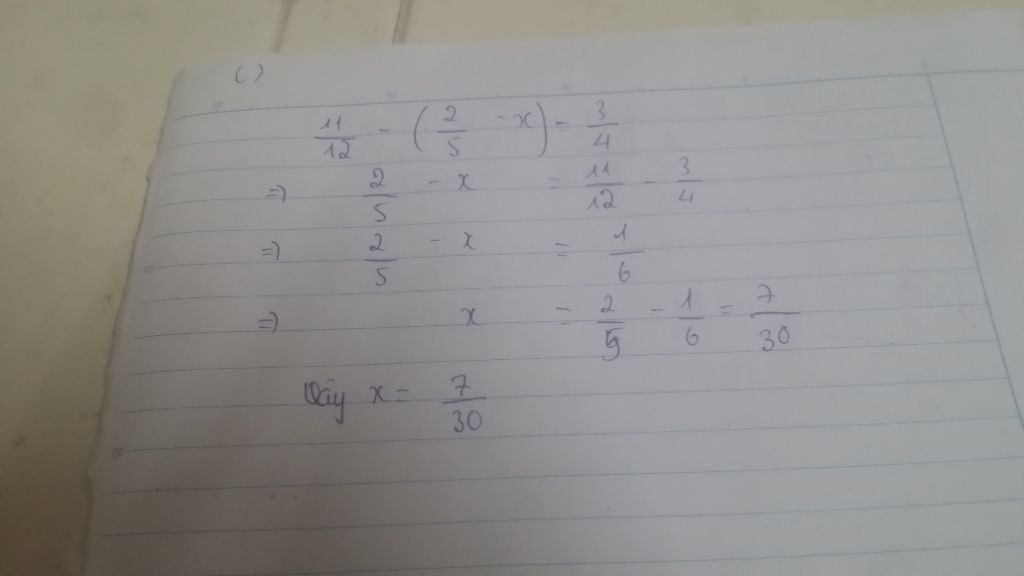 c)
11/12 - (2/5 - x) = 3/4
=> 2/5 - x = 11/12 - 3/4
=> 2/5 - x = 1/6
=> x = 2/5 - 1/6 = 7/30
Vậy x = 7/30